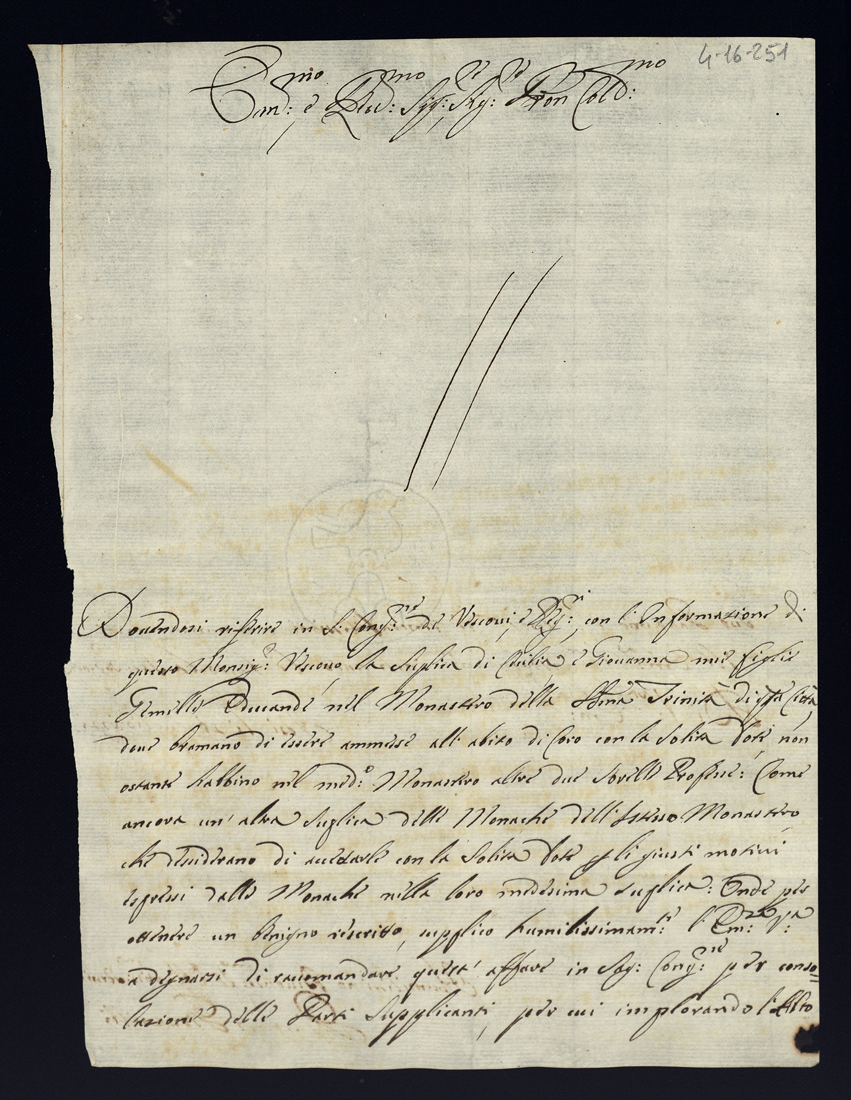 4-16-251
Em:mo e Rev:mo Sig:re Sig:re Pron Col:mo
Dovendosi riferire in S. Cong:ne de Vescovi, e Reg:ri, con l'Informazione di
questo Monsig:r Vescovo la Suplica di Cecilia e Giovanna mie figlie
Gemelle Educande nel Monastero della SSma Trinità di qta Città
dove bramano di essere ammesse all'abito di Coro con la solita dote non
ostante habbino nel med:o Monastero altre due sorelle Professe: Come
ancora un'altra Suplica delle Monache dell'istesso Monastero
che desiderano di accettarle con la solita dote p li giusti motivi
espressi dalle Monache nella loro medesima Suplica: Onde per
ottenere un benigno rescritto, supplico humilissimam:te l'Em:za V:ra
a degnarsi di racomandare quest'affare in Sag: Cong:ne per conso=
lazione delle Parti Supplicanti, per cui implorando l'Alto